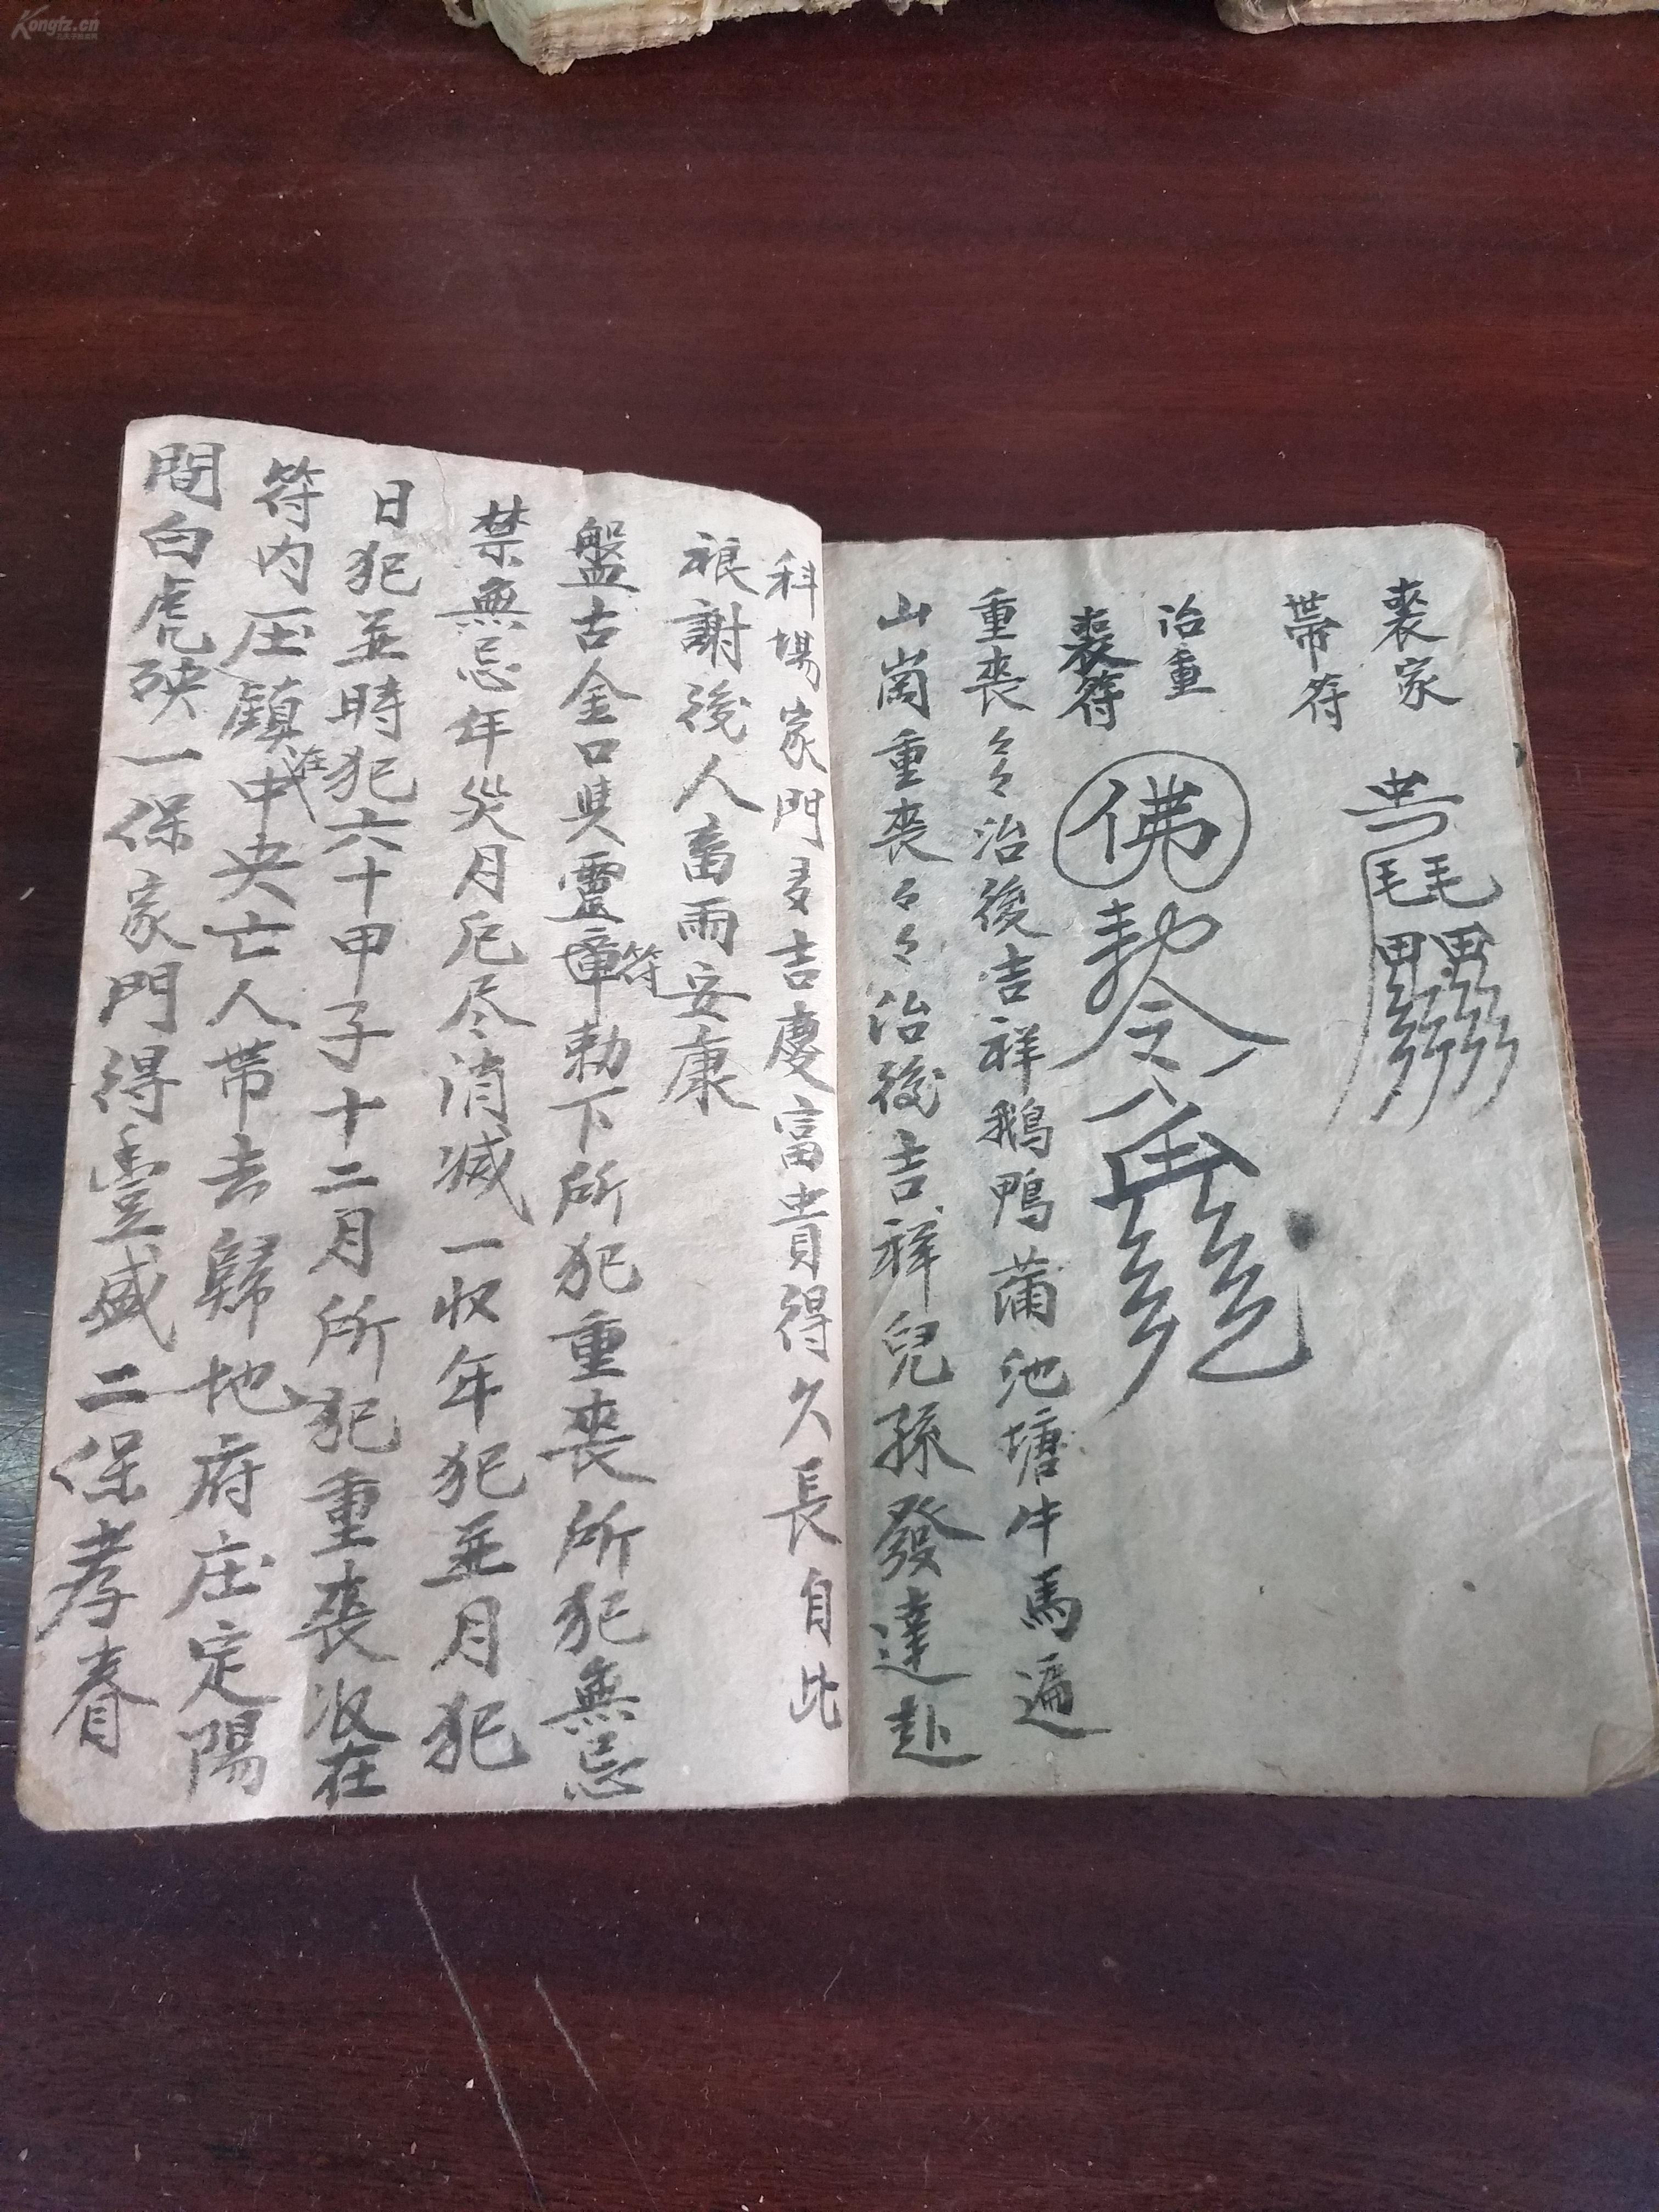 喪家
帶符
治重
喪符
佛
勅令
重喪々重々治後吉祥鵝鴨蒲池塘牛馬遍
山崗重喪々々治後吉祥兒孫發達赴
科場家門多吉慶富貴得久長自此
禳謝後人畜雨安康
盤古金口與靈章符勅下所犯重喪所犯無忌
禁無忌年災月厄尽消滅一收年犯並月犯
日犯並時犯六十甲子十二月所犯重喪收在
符内压鎮中央亡人帶去歸地府庄定陽
間白虎殃一保家門得豊盛二保孝眷
Kongfz.cn